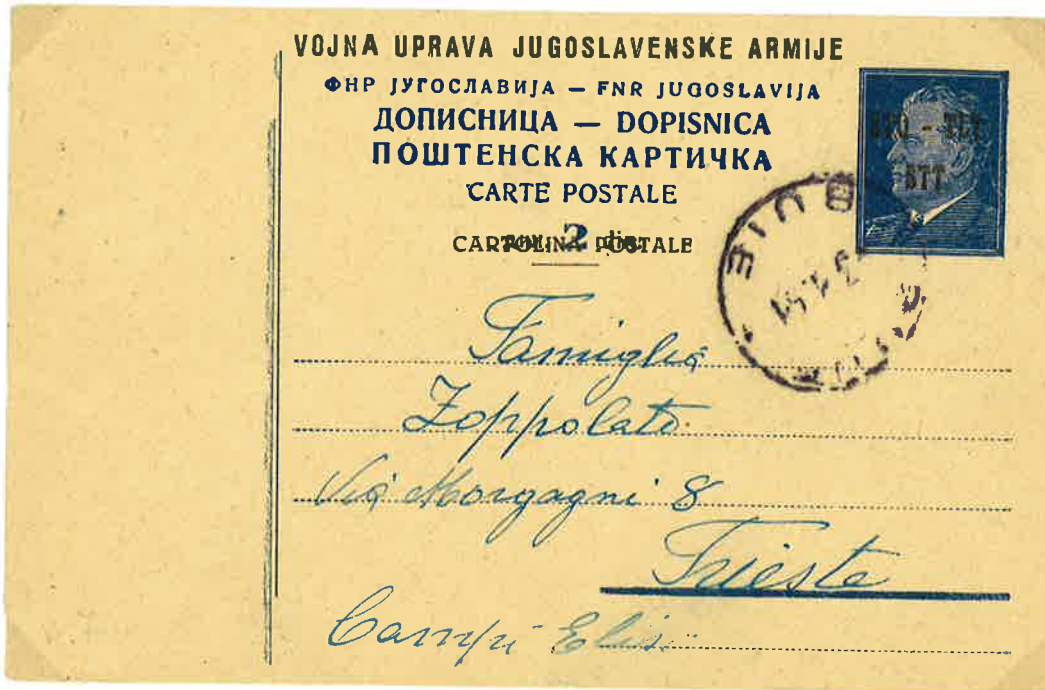 VOJNA UPRAVA JUGOSLAVENSKE ARMIJE
ФНР ЈУГОСЛАВИЈА — FNR JUGOSLAVIJA
ДОПИСНИЦА — DOPISNICA
ПОШТЕНСКА КАРТИЧКА
CARTE POSTALE
CARTOLINA POSTALE
2 din.
STT
BUIE
Famiglia
Zoppolato
Via Morgagni 8
Trieste
Campi Elisi